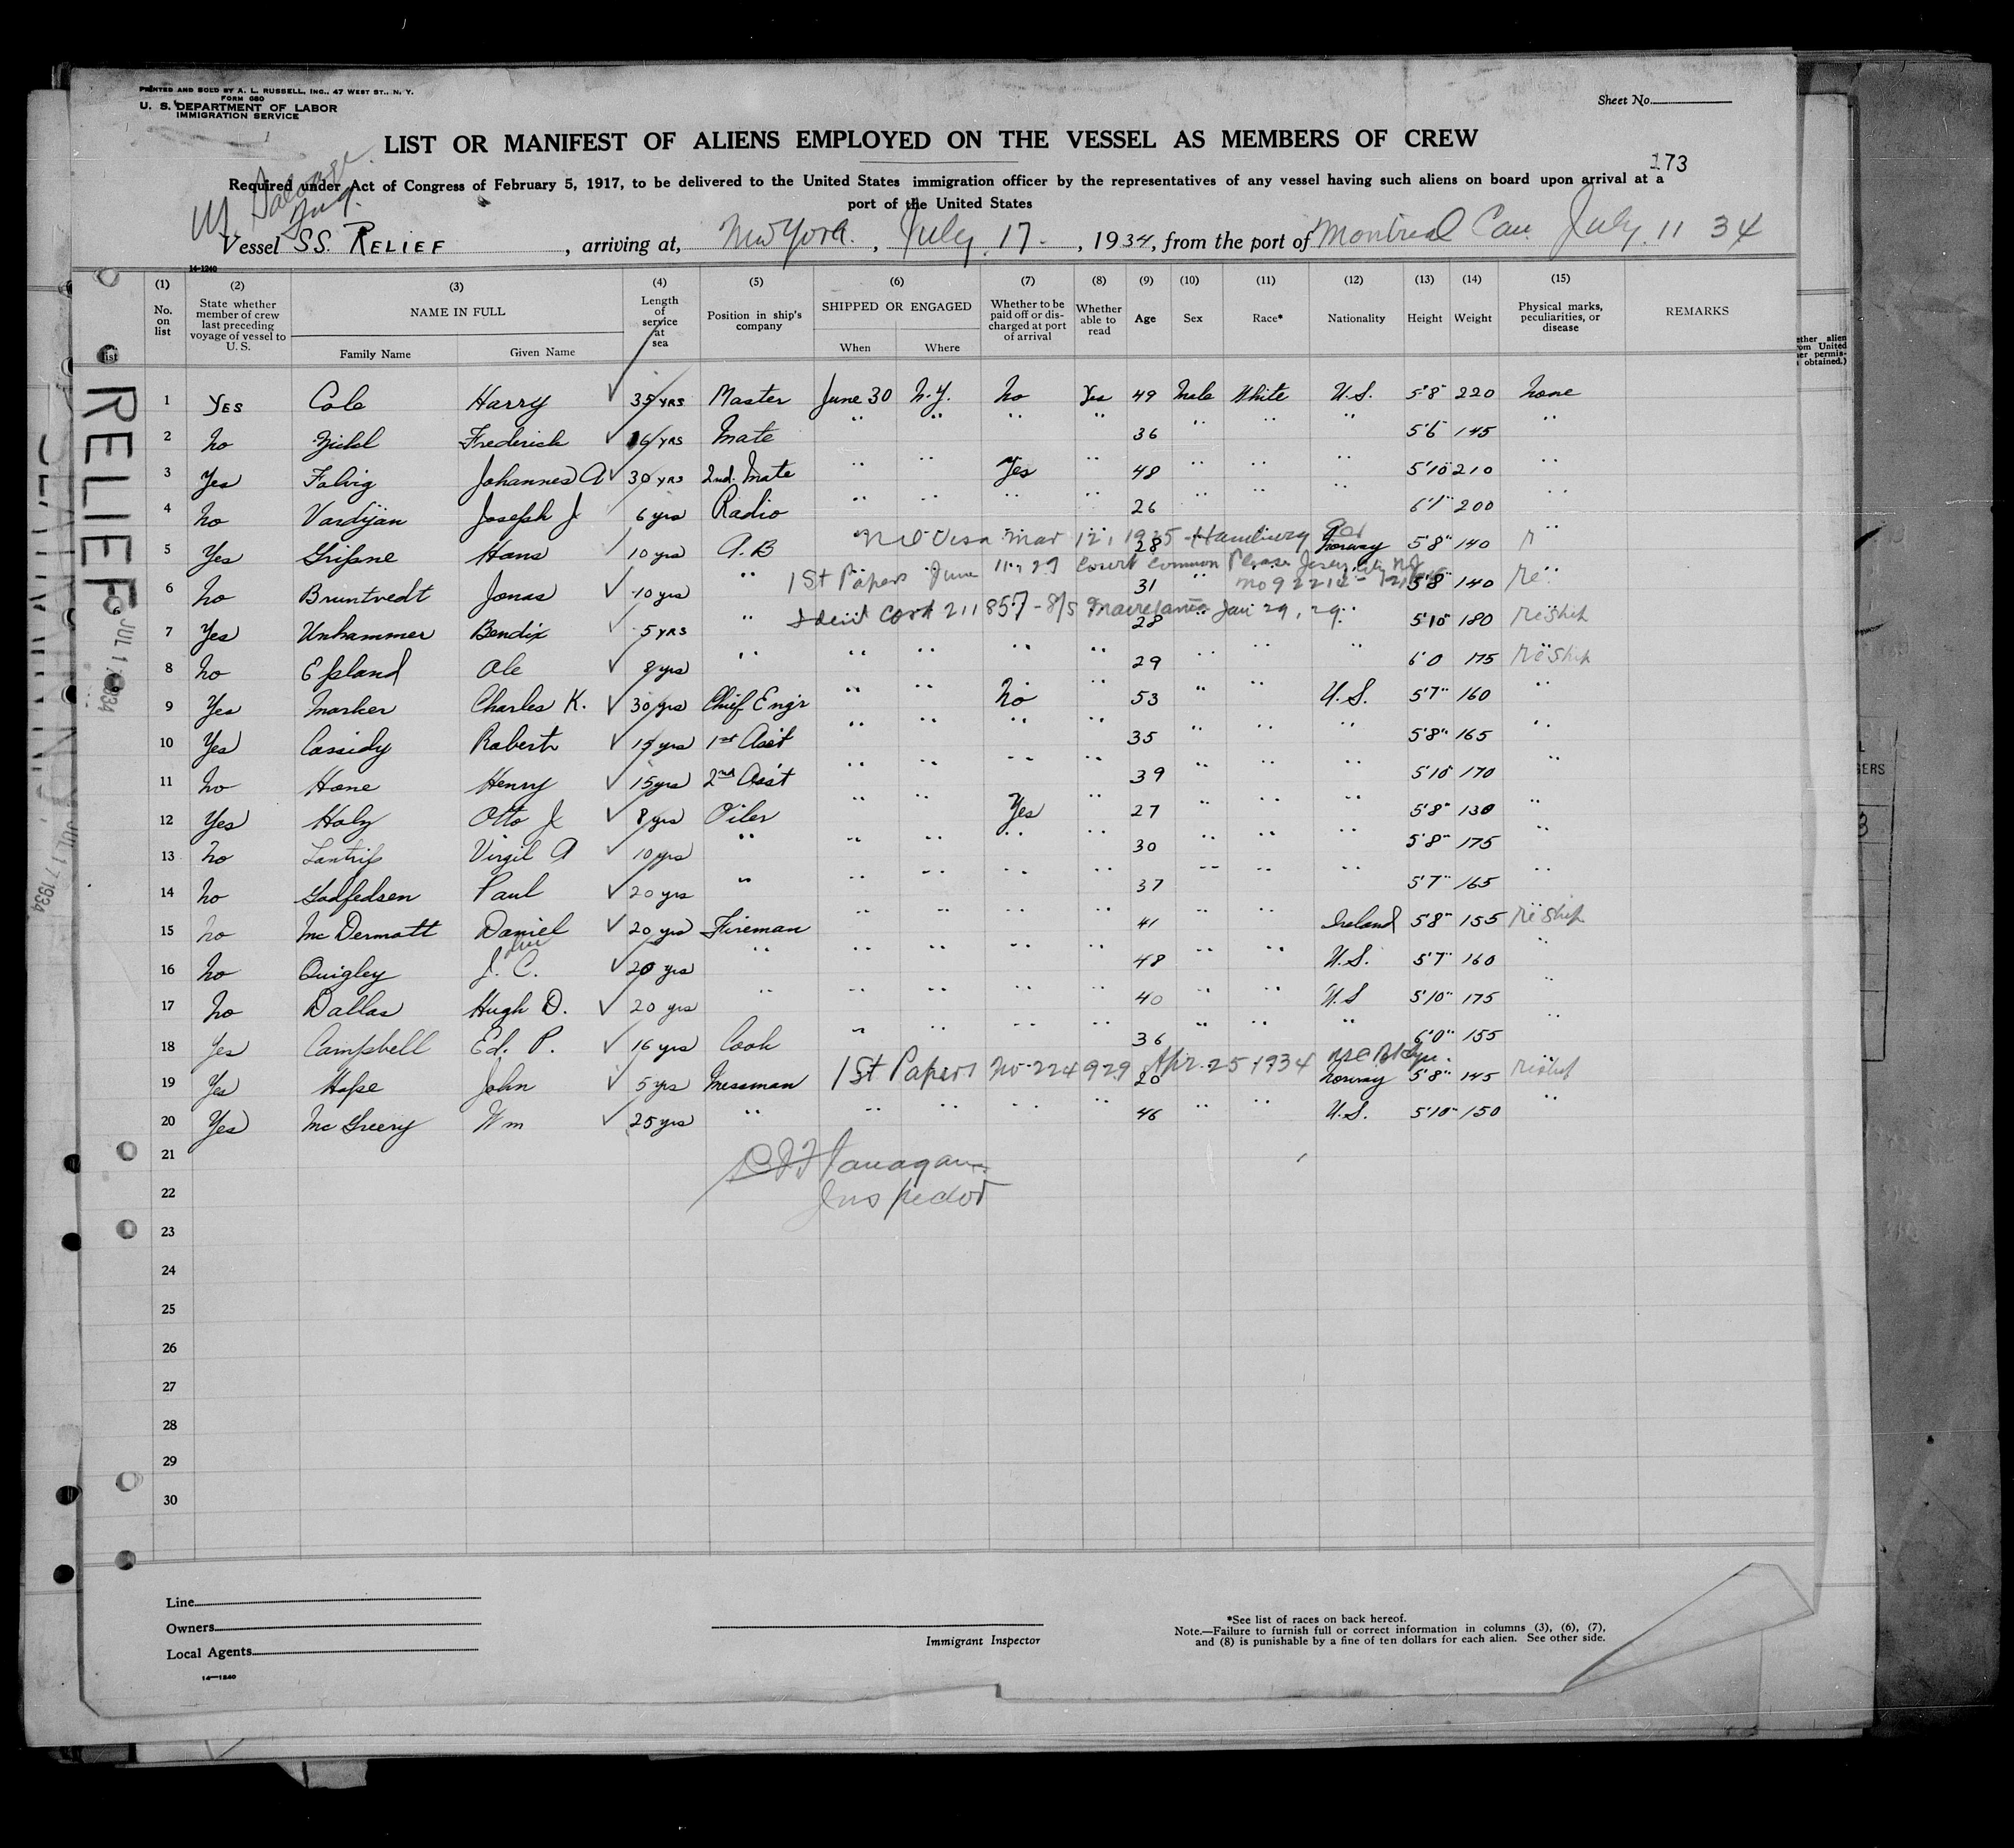 PRINTED AND SOLD BY A. L. RUSSELL, INC., 47 WEST ST., N. Y.
FORM 680
U. S. DEPARTMENT OF LABOR
IMMIGRATION SERVICE
Sheet No.
LIST OR MANIFEST OF ALIENS EMPLOYED ON THE VESSEL AS MEMBERS OF CREW
173
Required under Act of Congress of February 5, 1917, to be delivered to the United States immigration officer by the representatives of any vessel having such aliens on board upon arrival at a
port of the United States
Salvage
Tug.
Vessel SS. RELIEF, arriving at, New York., July 17., 1934, from the port of Montreal Can July 11 34
14-1240
(1) (2) (3) (4) (5) (6) (7) (8) (9) (10) (11) (12) (13) (14) (15)
No. on list State whether member of crew last preceding voyage of vessel to U. S. NAME IN FULL Family Name Given Name Length of service at sea Position in ship's company SHIPPED OR ENGAGED When Where Whether to be paid off or discharged at port of arrival Whether able to read Age Sex Race* Nationality Height Weight Physical marks, peculiarities, or disease REMARKS
1 YES Cole Harry 35 YRS Master June 30 N.Y. No Yes 49 Male White U.S. 5'8" 220 None
2 No Frederick 16 YRS Mate " " " " 36 " " " 5'6" 145 "
3 Yes Falvig Johannes A 30 YRS 2nd. Mate " " Yes " 48 " " " 5'10" 210 "
4 No Vardijan Joseph J 6 yrs Radio " " " " 26 " " " 6'1" 200 "
Visa Mar 12, 1925 - Hamburg Ger
5 Yes Gripsne Hans 10 yrs A.B 28 Norway 5'8" 140
1st Papers June 11-29 Court Common Pleas Jersey City NJ
6 No Bruntvedt Jonas 10 yrs " 31 " 5'8" 140
Ident Card 211857 - S/S Mauretania Jan 29, 29
7 Yes Unhammer Bendix 5 YRS " 28 " 5'10" 180 Reship
8 No Espland Ole 8 yrs " " " " " 29 " " " 6'0 175 Reship
9 Yes Marker Charles K. 30 yrs Chief Engr " " No " 53 " " U.S. 5'7" 160 "
10 Yes Cassidy Robert 15 yrs 1st Ass't " " " " 35 " " " 5'8" 165 "
11 No Hane Henry 15 yrs 2nd Ass't " " " " 39 " " " 5'10" 170 "
12 Yes Holy Otto J 8 yrs Oiler " " Yes " 27 " " " 5'8" 130 "
13 No Lantrip Virgil A 10 yrs " " " " " 30 " " " 5'8" 175 "
14 No Godfedsen Paul 20 yrs " " " " " 37 " " " 5'7" 165 "
15 No McDermott Daniel 20 yrs Fireman " " " " 41 " " Ireland 5'8" 155 Reship
16 No Quigley J. C. 20 yrs " " " " " 48 " " U.S. 5'7" 160 "
17 No Dallas Hugh D. 20 yrs " " " " " 40 " " U.S 5'10" 175 "
18 Yes Campbell Ed. P. 16 yrs Cook " " " " 36 " " " 6'0" 155 "
1st Papers No-224929 Apr. 25 1934
19 Yes Hope John 5 yrs Messman 20 Norway 5'8" 145 Reship
20 Yes McGreery Wm 25 yrs " " " " " 46 " " U.S. 5'10" 150 "
21
Flanagan
22
Inspector
23
24
25
26
27
28
29
30
RELIEF
JUL 17 1934
JUL 17 1934
Line
Owners
Local Agents
14—1240
Immigrant Inspector
*See list of races on back hereof.
Note.—Failure to furnish full or correct information in columns (3), (6), (7),
and (8) is punishable by a fine of ten dollars for each alien. See other side.